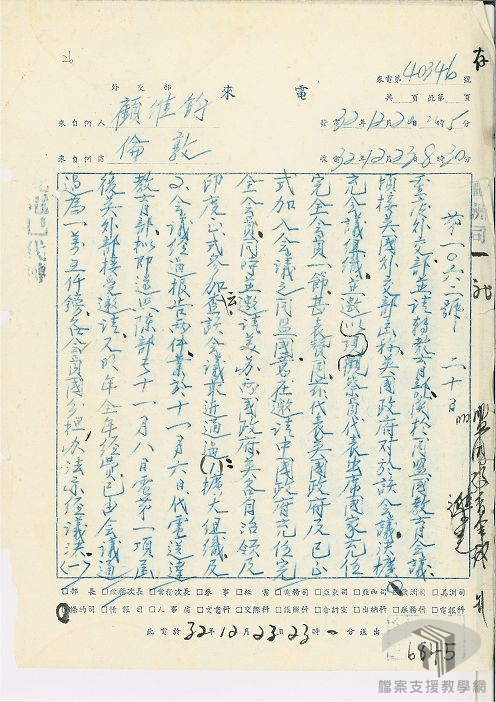 26
外交部
來電
來電第40346號
共 頁此第 頁
來自何人 顧維鈞
來自何處 倫敦
發電32年12月20日 時5分
收電32年12月23日8時30分
存
第一〇六二號 二十日
重慶外交部並請轉教育部關於同盟國教育會議
頃接英國外交部函稱英國政府對於該會議決擴
充會議組織並邀以觀察員代表出席國家充任
完全會員一節甚表贊同茲代表英國政府及已正
式加入會議之同盟國君在邀請中國政府充任完
全會員同時並邀請美蘇兩國政府英各自治領及
印度正式參加查該會議最近通過(1)擴大組織及
2.會議經過報告兩件業於十一月六日代電送達
教育部擬即遵照陳部長十一月八日電第一項屆
後英外部接受邀請又明年全年經費已由會議通
過為一萬五仟鎊各會員國多担次法示經議決(一)
□部長□政務次長□常務次長□參事□秘書□總務司□亞東司□亞西司□歐洲司□美洲司
條約司□情報司□人事處□文書科□交際科□護照科□會計室□出納科□庶務科□電報科
此電於32年12月23日23時一分送出
6845
檔案支援教學網